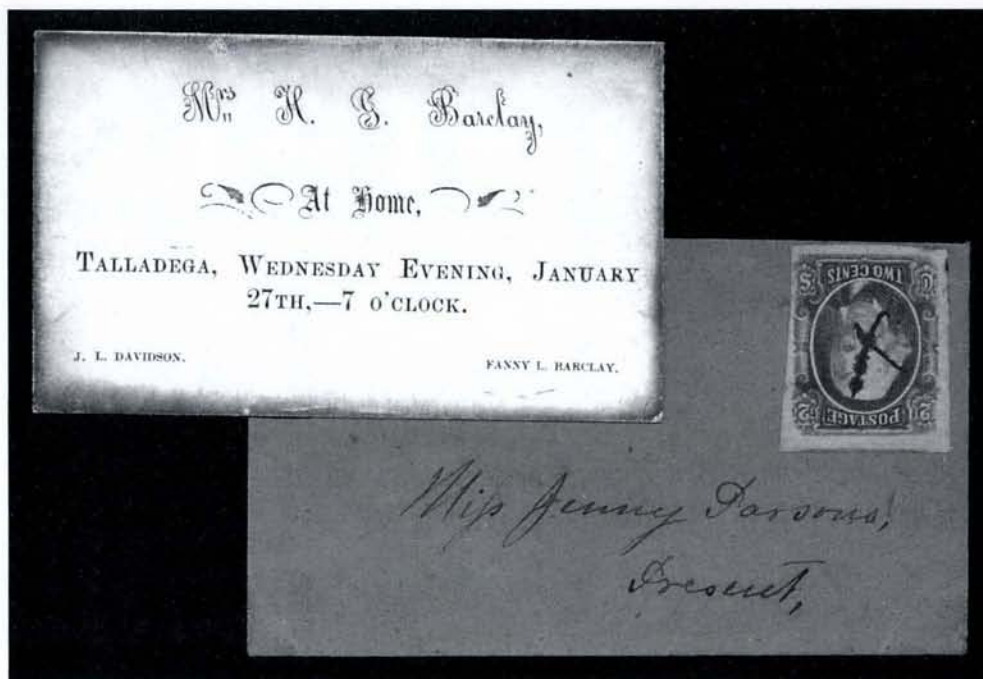 Mrs H. G. Barclay,
At Home,
TALLADEGA, WEDNESDAY EVENING, JANUARY
27TH,—7 O'CLOCK.
J. L. DAVIDSON.
FANNY L. BARCLAY.
TWO CENTS
POSTAGE
2
2
Miss Jenny Parsons,
Present,